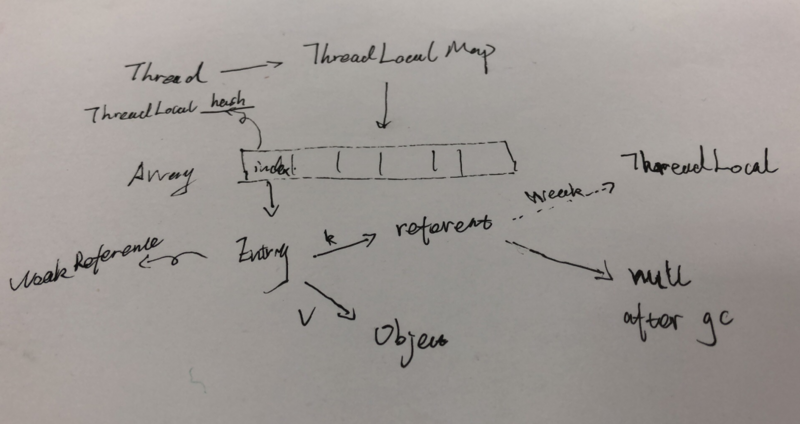 Thread
ThreadLocalMap
ThreadLocal hash
Array
index
Entry
k
referent
weak
ThreadLocal
WeakReference
V
Object
null
after gc